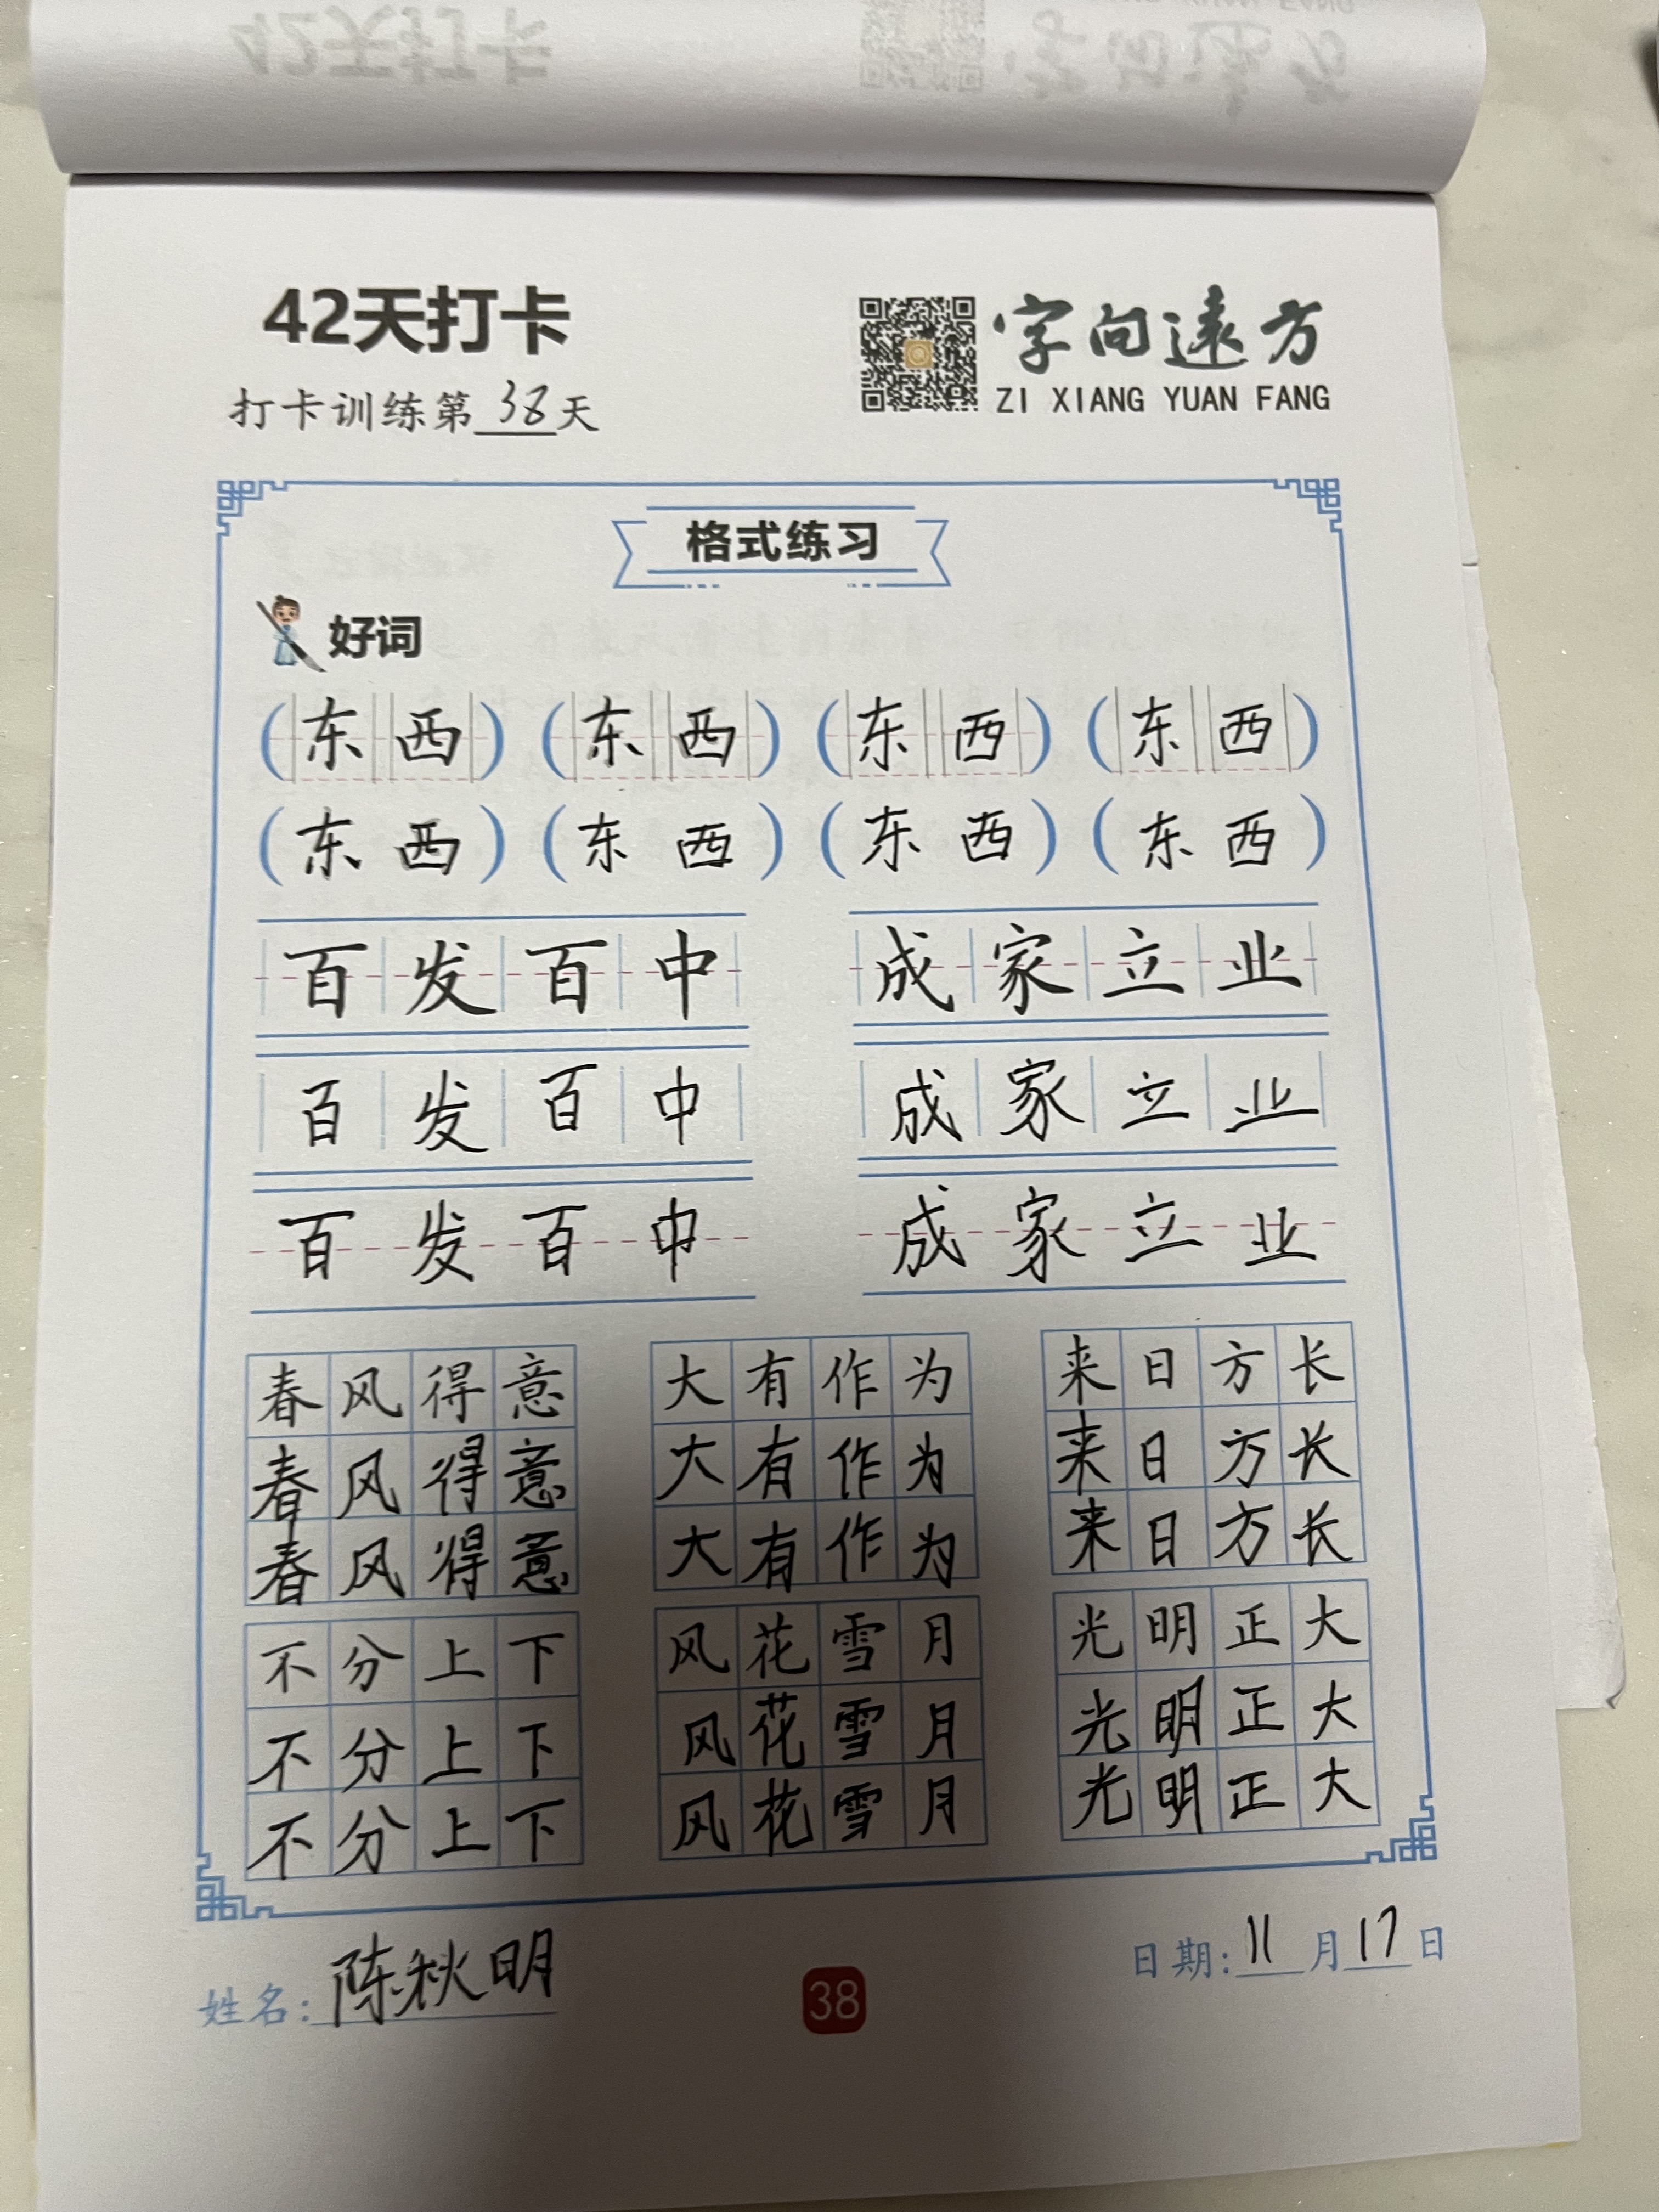 42天打卡
字向遠方
ZI XIANG YUAN FANG
打卡训练第38天
格式练习
好词
(东西) (东西) (东西) (东西)
(东西) (东西) (东西) (东西)
百发百中 成家立业
百发百中 成家立业
百发百中 成家立业
春风得意 大有作为 来日方长
春风得意 大有作为 来日方长
春风得意 大有作为 来日方长
不分上下 风花雪月 光明正大
不分上下 风花雪月 光明正大
不分上下 风花雪月 光明正大
姓名:陈秋明
38
日期:11月17日